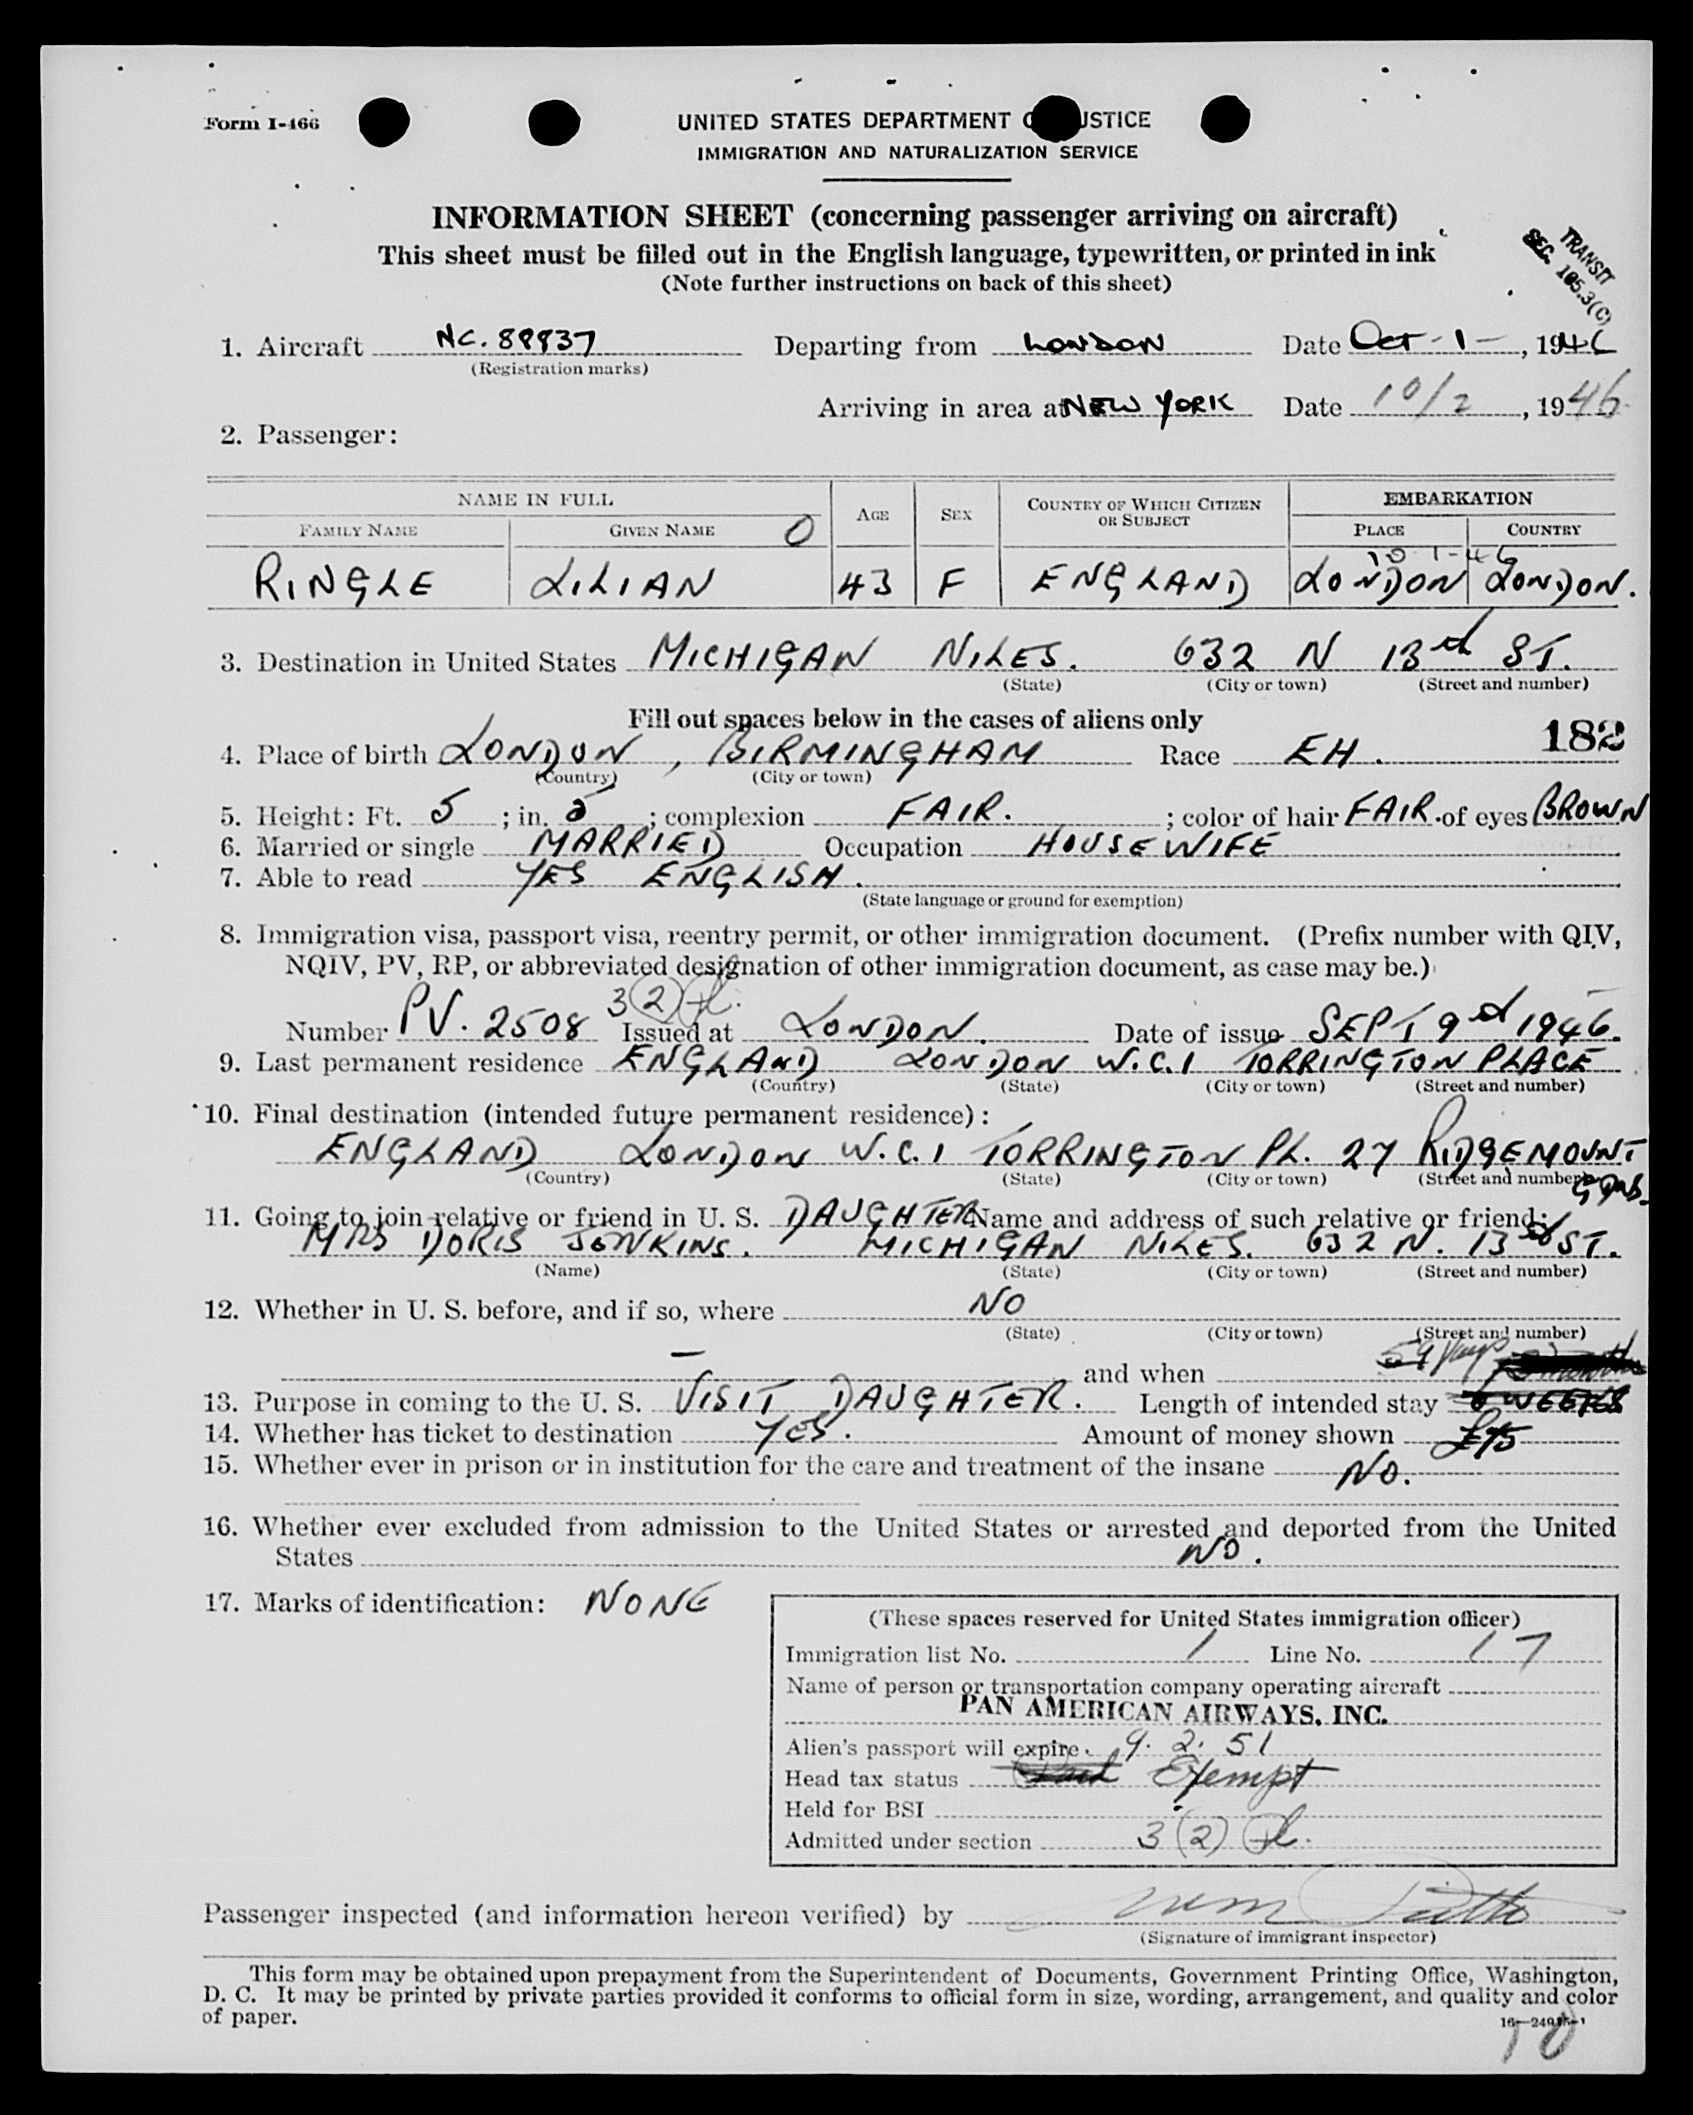 Form I-466
UNITED STATES DEPARTMENT OF JUSTICE
IMMIGRATION AND NATURALIZATION SERVICE
INFORMATION SHEET (concerning passenger arriving on aircraft)
This sheet must be filled out in the English language, typewritten, or printed in ink
(Note further instructions on back of this sheet)
TRANSIT
SEC. 105.3(C)
1. Aircraft NC. 88837 Departing from LONDON Date Oct-1-, 1946
(Registration marks)
Arriving in area at NEW YORK Date 10/2, 1946
2. Passenger:
NAME IN FULL AGE SEX COUNTRY OF WHICH CITIZEN OR SUBJECT EMBARKATION
FAMILY NAME GIVEN NAME O PLACE COUNTRY
10-1-46
RINGLE LILIAN 43 F ENGLAND LONDON LONDON.
3. Destination in United States MICHIGAN NILES. 632 N 13th ST.
(State) (City or town) (Street and number)
Fill out spaces below in the cases of aliens only
182
4. Place of birth LONDON, BIRMINGHAM Race EH.
(Country) (City or town)
5. Height: Ft. 5; in. 5; complexion FAIR.; color of hair FAIR. of eyes BROWN
6. Married or single MARRIED Occupation HOUSEWIFE
7. Able to read YES ENGLISH.
(State language or ground for exemption)
8. Immigration visa, passport visa, reentry permit, or other immigration document. (Prefix number with QIV,
NQIV, PV, RP, or abbreviated designation of other immigration document, as case may be.)
3(2)
Number PV. 2508 Issued at LONDON. Date of issue SEPT 9th 1946.
9. Last permanent residence ENGLAND LONDON W.C.1 TORRINGTON PLACE
(Country) (State) (City or town) (Street and number)
10. Final destination (intended future permanent residence):
ENGLAND LONDON W.C.1 TORRINGTON PL. 27 RIDGEMOUNT GDNS.
(Country) (State) (City or town) (Street and number)
11. Going to join relative or friend in U. S. DAUGHTER Name and address of such relative or friend:
MRS DORIS JONKINS. MICHIGAN NILES. 632 N. 13th ST.
(Name) (State) (City or town) (Street and number)
12. Whether in U. S. before, and if so, where NO
(State) (City or town) (Street and number)
— and when
59 days
13. Purpose in coming to the U. S. VISIT DAUGHTER. Length of intended stay WEEKS
14. Whether has ticket to destination YES. Amount of money shown £75
15. Whether ever in prison or in institution for the care and treatment of the insane NO.
16. Whether ever excluded from admission to the United States or arrested and deported from the United
States NO.
17. Marks of identification: NONE
(These spaces reserved for United States immigration officer)
Immigration list No. 1 Line No. 17
Name of person or transportation company operating aircraft
PAN AMERICAN AIRWAYS, INC.
Alien's passport will expire 9. 2. 51
Head tax status Exempt
Held for BSI
Admitted under section 3(2)
Passenger inspected (and information hereon verified) by
(Signature of immigrant inspector)
This form may be obtained upon prepayment from the Superintendent of Documents, Government Printing Office, Washington,
D. C. It may be printed by private parties provided it conforms to official form in size, wording, arrangement, and quality and color
of paper.
10